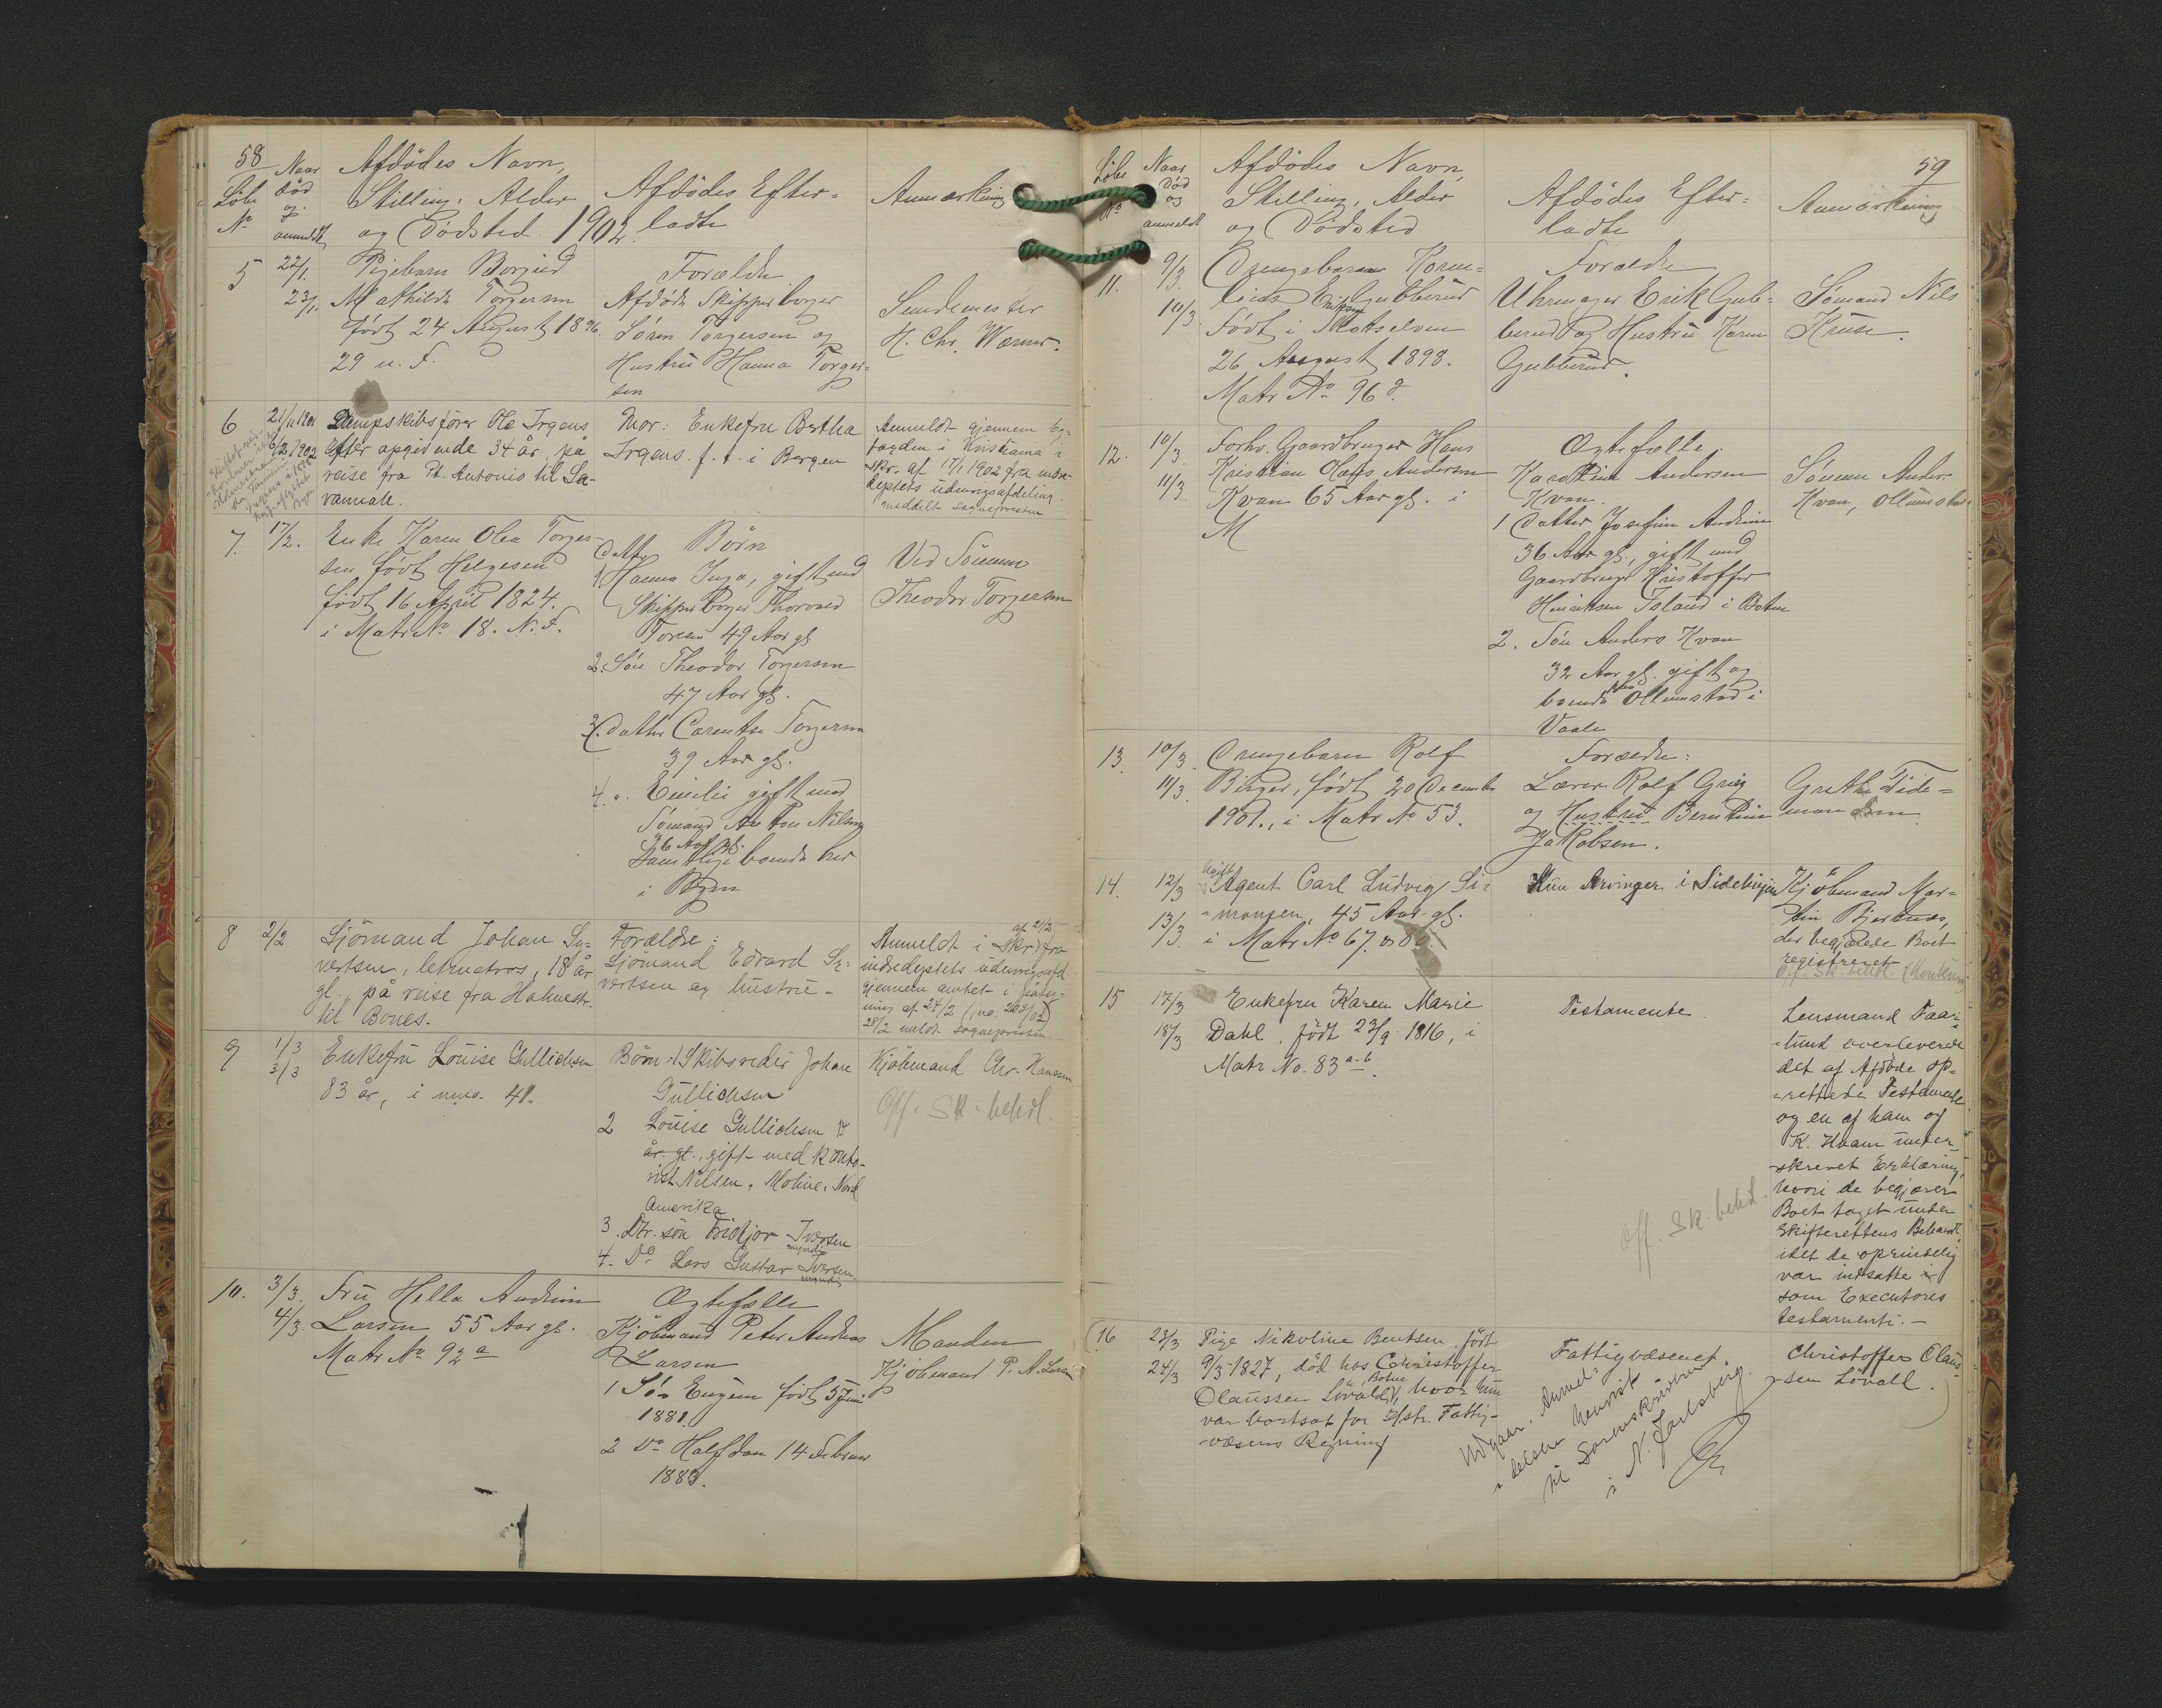 58
Løbe No
Naar død og anmeldt
Afdødes Navn,
Stilling, Alder
og Dødsted 1902.
Afdødes Efter=
ladte
Anmærkning
5
22/1.
23/1.
Pigebarn Borgud
Mathilde Torgersen
født 24 August 1896
29 n. F.
Forældre
Afdøde Skipperborger
Søren Torgersen og
Hustru Hanna Torger=
sen
H. Chr. Warner.
6
21/11 1901
6/2 1902
Dampskibsfører Ole Irgens
efter opgivende 34 år, på
reise fra Pt. Antonio til Sa-
vannale.
Mor: Enkefru Bertha
Irgens. f. t. i Bergen
Anmeldt gjennem By=
fogden i Kristiania i
skr. af 17/1 1902 fra indre
deptets udenrigsafdeling.
meddelt sognepresten
7.
17/2.
Enke Karen Olea Torger-
sen født Helgesen
født 16 April 1824.
i Matr No 18. N. F.
Børn
Datter
1. Hanna Inga, gift med
Skipperborger Thorvald
Foresen 49 Aar gl
2. Søn Theodor Torgersen
47 Aar gl.
3. Datter Carentse Torgersen
39 Aar gl.
4. " Emilie gift med
Sømand Anton Nilsen
36 Aar gl.
Samtlige boende her
i Byen
Ved Sønnen
Theodor Torgersen
8
2/2
Sjömand Johan Sy=
vertsen, letmatros, 18 år
gl., på reise fra Holmestr.
til Bones.
Forældre:
Sjömand Edvard Sy-
vertsen og hustru -
Anmeldt i skr. af 21/2 fra
indredeptets udenrigsafd
gjennem amtet i påteg=
ning af 24/2 (jno. 208/02)
28/2 meldt sognepresten
9
1/3
3/3
Enkefru Louise Gullichsen
83 år, i mno. 41.
Børn: 1 Skibsreder Johan
Gullichsen
2 Louise Gullichsen
år. gl., gift med konto-
rist Nilsen, Moline, Nord
Amerika
3. Dtr. søn Fridtjor Iversen
myndig
4. Do Lars Gustav Iversen
myndig
Kjøbmand Chr. Hansen
Off. Sk. behdl.
10.
3/3.
4/3
Fru Hella Andrine
Larsen 55 Aar gl.
Matr No 92 a
Ægtefælle
Kjøbmand Peter Andreas
Larsen
1 Søn Eugen født 5 Juni
1881.
2 Do Halfdan 14 Februar
1889.
Manden
Kjøbmand P. A. Larsen
59
Løbe No
Naar Død og anmeldt
Afdødes Navn,
Stilling, Alder
og Dødsted
Afdødes Efter=
ladte
Anmærkning
11.
9/3.
10/3
Drengebarn Korne=
lius Eriksen Gubberud
Født i Skotselven
26 August 1898.
Matr No 96 d.
Forældre
Uhrmager Erik Gub=
berud og Hustru Karen
Gubberud.
Sømand Nils
Kruse.
12.
10/3
11/3.
Forhv. Gaardbruger Hans
Kristian Olafs Andersen
Kvan 65 Aar gl. i
M
Ægtefælle.
Karoline Andersen
Kvan
1 Datter Josefine Andrine
36 Aar gl., gift med
Gaardbruger Kristoffer
Henriksen Toland i Botne
2. Søn Anders Kvan
32 Aar gl. gift og
boende Ollumstad i
Vaale
Sønnen Anders
Kvan, Ollumstad.
13.
10/3.
11/3.
Drengebarn Rolf
Birger, født 20 December
1901., i Matr No 53.
Forældre:
Lærer Rolf Grieg
og Hustru Berntine
Jakobsen.
Grethe Tide=
mandsen
14.
12/3
13/3.
Ugift
Agent Carl Ludvig Si=
monsen, 45 Aar gl.
i Matr No 67.
Kun Arvinger i Sidelinjen
Kjøbmand Mar=
tin Bjertnæs,
der begjærede Boet
registreret
Off. Sk. behdl. (Konkurs)
15
17/3
18/3
Enkefru Karen Marie
Dahl, født 23/9 1816, i
Matr No. 83 a-b.
Testamente.
Off. Sk. behdl.
Lensmand Faar=
lund overleverede
det af Afdøde op=
rettede Testamente
og en af ham og
K. Hvam under=
skrevet Erklæring,
hvori de begjærer
Boet taget under
Skifterettens Behandl.
idet de oprindelig
var indsatte
som Executores
testamenti.-
16
23/3
24/3
Pige Nikoline Bentsen, født
9/3-1827, død hos Christoffer
Olaussen Løvald, i Botne, hvor hun
var bortsat for H/str. Fattig-
væsens Regning
Fattigvæsenet.
Udgaar. Anmel=
delsen henvist
til Sorenskriveren
i N. Jarlsberg.
Christoffer Olaus=
sen Løvall.